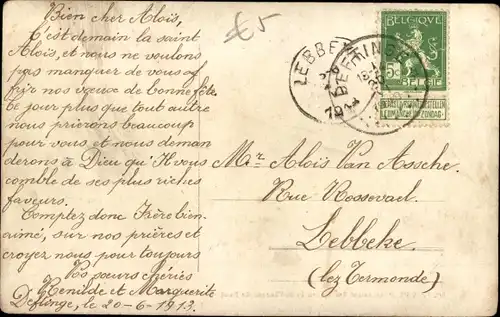 Bien cher Aloïs,
C'est demain la saint
Aloïs, et nous ne voulons
pas manquer de vous of
frir nos vœux de bonne fête
Ce jour plus que tout autre
nous prierons beaucoup
pour vous et nous deman
derons à Dieu qu'Il vous
comble de ses plus riches
faveurs.
Comptez donc Frère bien
aimé, sur nos prières et
croyez nous pour toujours
Vos sœurs chéries
Renilde et Marguerite
Deftinge, le 20-6-1913.
€5
LEBBE
DEFTINGE
BELGIQUE
5c
BELGIË
Mr. Aloïs Van Assche.
Rue Rossevael.
Lebbeke.
(lez Termonde)